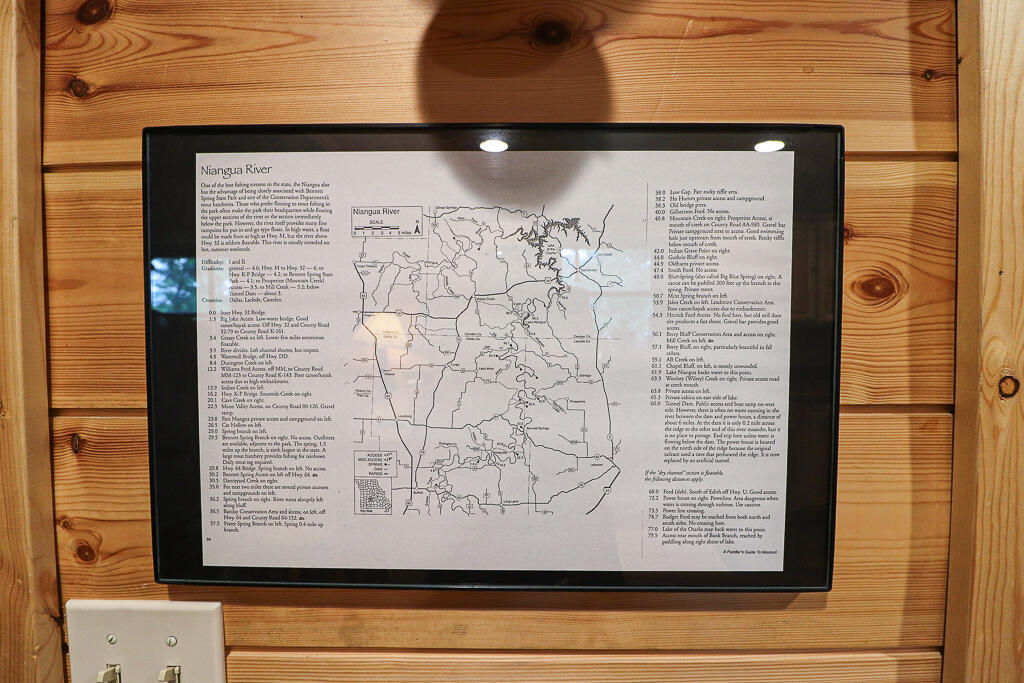 Niangua River
One of the best fishing streams in the state, the Niangua also
has the advantage of being closely associated with Bennett
Spring State Park and one of the Conservation Department's
trout hatcheries. Those who prefer floating to trout fishing in
the park often make the park their headquarters while floating
the upper sections of the river or the section immediately
below the park. However, the river itself provides many fine
campsites for put-in-and-go type floats. In high water, a float
could be made from as high as Hwy. M, but the river above
Hwy. 32 is seldom floatable. This river is usually crowded on
hot, summer weekends.
Difficulty: I and II.
Gradients: general — 4.6; Hwy. M to Hwy. 32 — 6; to
Hwy. K-P Bridge — 4.2; to Bennett Spring State
Park — 4.1; to Prosperine (Mountain Creek)
Access — 3.5; to Mill Creek — 3.2; below
Tunnel Dam — about 3.
Counties: Dallas, Laclede, Camden.
0.0 State Hwy. 32 Bridge.
1.3 Big John Access. Low-water bridge. Good
canoe/kayak access. Off Hwy. 32 and County Road
32-79 to County Road K-161.
3.4 Greasy Creek on left. Lower few miles sometimes
floatable.
3.9 River divides. Left channel shorter, but inspect.
4.8 Watermill Bridge, off Hwy. DD.
8.4 Durington Creek on left.
12.2 Williams Ford Access, off MM, to County Road
MM-125 to County Road K-143. Poor canoe/kayak
access due to high embankment.
13.9 Indian Creek on left.
16.2 Hwy. K-P Bridge. Fourmile Creek on right.
20.1 Cave Creek on right.
22.3 Moon Valley Access, on County Road 00-126. Gravel
ramp.
23.8 Fort Niangua private access and campground on left.
26.5 Cat Hollow on left.
29.0 Spring branch on left.
29.5 Bennett Spring Branch on right. No access. Outfitters
are available, adjacent to the park. The spring, 1.5
miles up the branch, is sixth largest in the state. A
large trout hatchery provides fishing for rainbows.
Daily trout tag required.
29.8 Hwy. 64 Bridge. Spring branch on left. No access.
30.2 Bennett Spring Access on left off Hwy. 64.
30.5 Danceyard Creek on right.
35.0 For next two miles there are several private accesses
and campgrounds on left.
36.2 Spring branch on right. River turns abruptly left
along bluff.
36.5 Barclay Conservation Area and access, on left, off
Hwy. 64 and County Road 64-152.
37.5 Prater Spring Branch on left. Spring 0.4 mile up
branch.
34
Niangua River
SCALE
0 1 2 3 4 5 miles
N
Climax Springs
Lake
of the
Ozarks
Camdenton
Macks Creek
Lake Niangua
Camden Co.
Dallas Co.
Camden Co.
Laclede Co.
Tunas
Lead Mine
Eldridge
Urbana
Prosperine
Louisburg
Bennett Springs
Buffalo
Long Lane
Lebanon
ACCESS
MDC ACCESS
SPRING
DAM
RAPIDS
Key Map
38.0 Low Gap. Fast rocky riffle area.
38.2 Ho Humm private access and campground.
38.3 Old bridge piers.
40.0 Gilberson Ford. No access.
40.8 Mountain Creek on right. Prosperine Access, at
mouth of creek on County Road AA-989. Gravel bar.
Private campground next to access. Good swimming
hole just upstream from mouth of creek. Rocky riffle
below mouth of creek.
42.0 Indian Grave Point on right.
44.0 Guthrie Bluff on right.
44.9 Oldhams private access.
47.4 Smith Ford. No access.
48.0 Blue Spring (also called Big Blue Spring) on right. A
canoe can be paddled 200 feet up the branch to the
spring. Private resort.
50.7 Mint Spring branch on left.
53.9 Jakes Creek on left. Leadmine Conservation Area.
Poor canoe/kayak access due to embankment.
54.3 Herrick Ford Access. No ford here, but old mill dam
site produces a fast shoot. Gravel bar provides good
access.
56.1 Berry Bluff Conservation Area and access on right.
Mill Creek on left.
57.1 Berry Bluff, on right, particularly beautiful in fall
colors.
59.1 AB Creek on left.
61.1 Chapel Bluff, on left, is mostly unwooded.
61.9 Lake Niangua backs water to this point.
63.3 Woolsey (Wilsey) Creek on right. Private access road
at creek mouth.
63.8 Private access on left.
65.3 Private cabin on east side of lake.
66.0 Tunnel Dam. Public access and boat ramp on west
side. However, there is often no water running in the
river between the dam and power house, a distance of
about 6 miles. At the dam it is only 0.2 mile across
the ridge to the other end of this river meander, but it
is no place to portage. End trip here unless water is
flowing below the dam. The power house is located
on the north side of the ridge because the original
tailrace used a cave that perforated the ridge. It is now
replaced by an artificial tunnel.
If the "dry channel" section is floatable,
the following distances apply.
68.0 Ford (slab). South of Edith off Hwy. U. Good access.
72.2 Power house on right. Powerline. Area dangerous when
water is coming through turbines. Use caution.
73.5 Power line crossing.
74.7 Rodger Ford may be reached from both north and
south sides. No crossing here.
77.0 Lake of the Ozarks may back water to this point.
79.5 Access near mouth of Bank Branch, reached by
paddling along right shore of lake.
A Paddler's Guide To Missouri